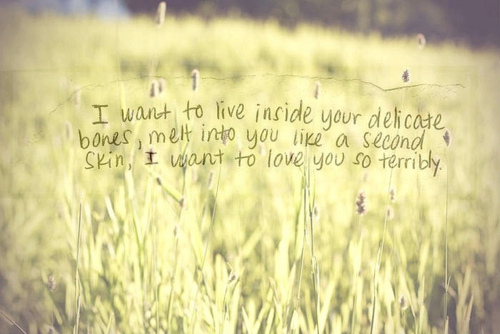 I want to live inside your delicate
bones, melt into you like a second
skin, I want to love you so terribly.